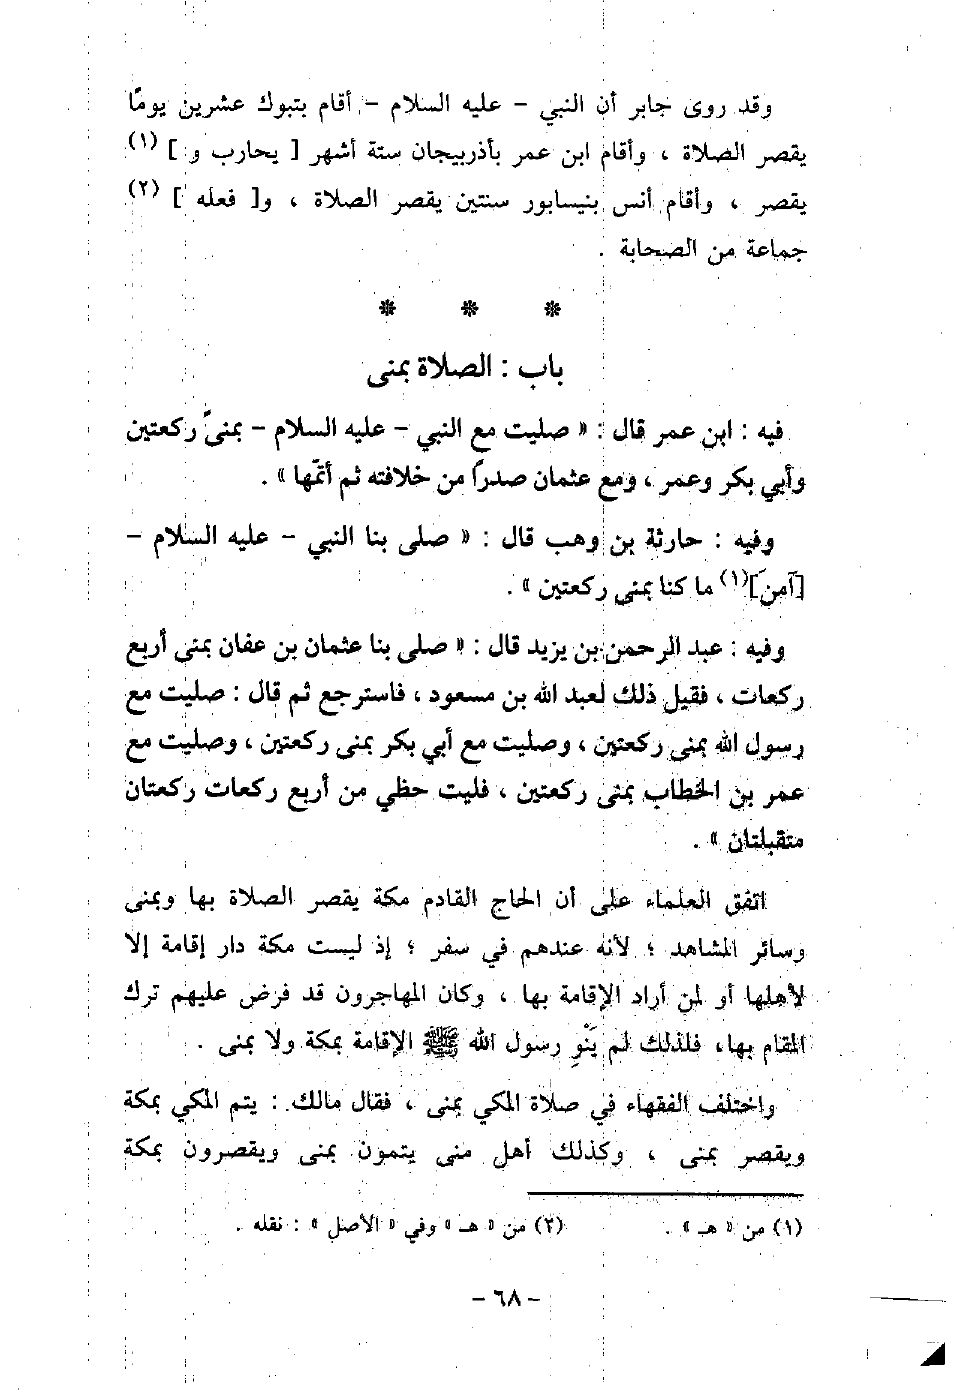 وقد روى جابر أن النبي - عليه السلام - أقام بتبوك عشرين يومًا
يقصر الصلاة ، وأقام ابن عمر بأذربيجان ستة أشهر [ يحارب و ] (١)
يقصر ، وأقام أنس بنيسابور سنتين يقصر الصلاة ، و[ فعله ] (٢)
جماعة من الصحابة .
* * *
باب : الصلاة بمنى
فيه : ابن عمر قال : « صليت مع النبي - عليه السلام - بمنىً ركعتين
وأبي بكر وعمر ، ومع عثمان صدرًا من خلافته ثم أتمّها » .
وفيه : حارثة بن وهب قال : « صلى بنا النبي - عليه السلام -
[آمنَ](١) ما كنا بمنى ركعتين » .
وفيه : عبد الرحمن بن يزيد قال : « صلى بنا عثمان بن عفان بمنى أربع
ركعات ، فقيل ذلك لعبد الله بن مسعود ، فاسترجع ثم قال : صليت مع
رسول الله بمنى ركعتين ، وصليت مع أبي بكر بمنى ركعتين ، وصليت مع
عمر بن الخطاب بمنى ركعتين ، فليت حظي من أربع ركعات ركعتان
متقبلتان » .
اتفق العلماء على أن الحاج القادم مكة يقصر الصلاة بها وبمنى
وسائر المشاهد ؛ لأنه عندهم في سفر ؛ إذ ليست مكة دار إقامة إلا
لأهلها أو لمن أراد الإقامة بها ، وكان المهاجرون قد فرض عليهم ترك
المقام بها، فلذلك لم يَنْوِ رسول الله ﷺ الإقامة بمكة ولا بمنى .
واختلف الفقهاء في صلاة المكي بمنى ، فقال مالك : يتم المكي بمكة
ويقصر بمنى ، وكذلك أهل منى يتمون بمنى ويقصرون بمكة
(١) من « هـ » .
(٢) من « هـ » وفي « الأصل » : نقله .
- ٦٨ -